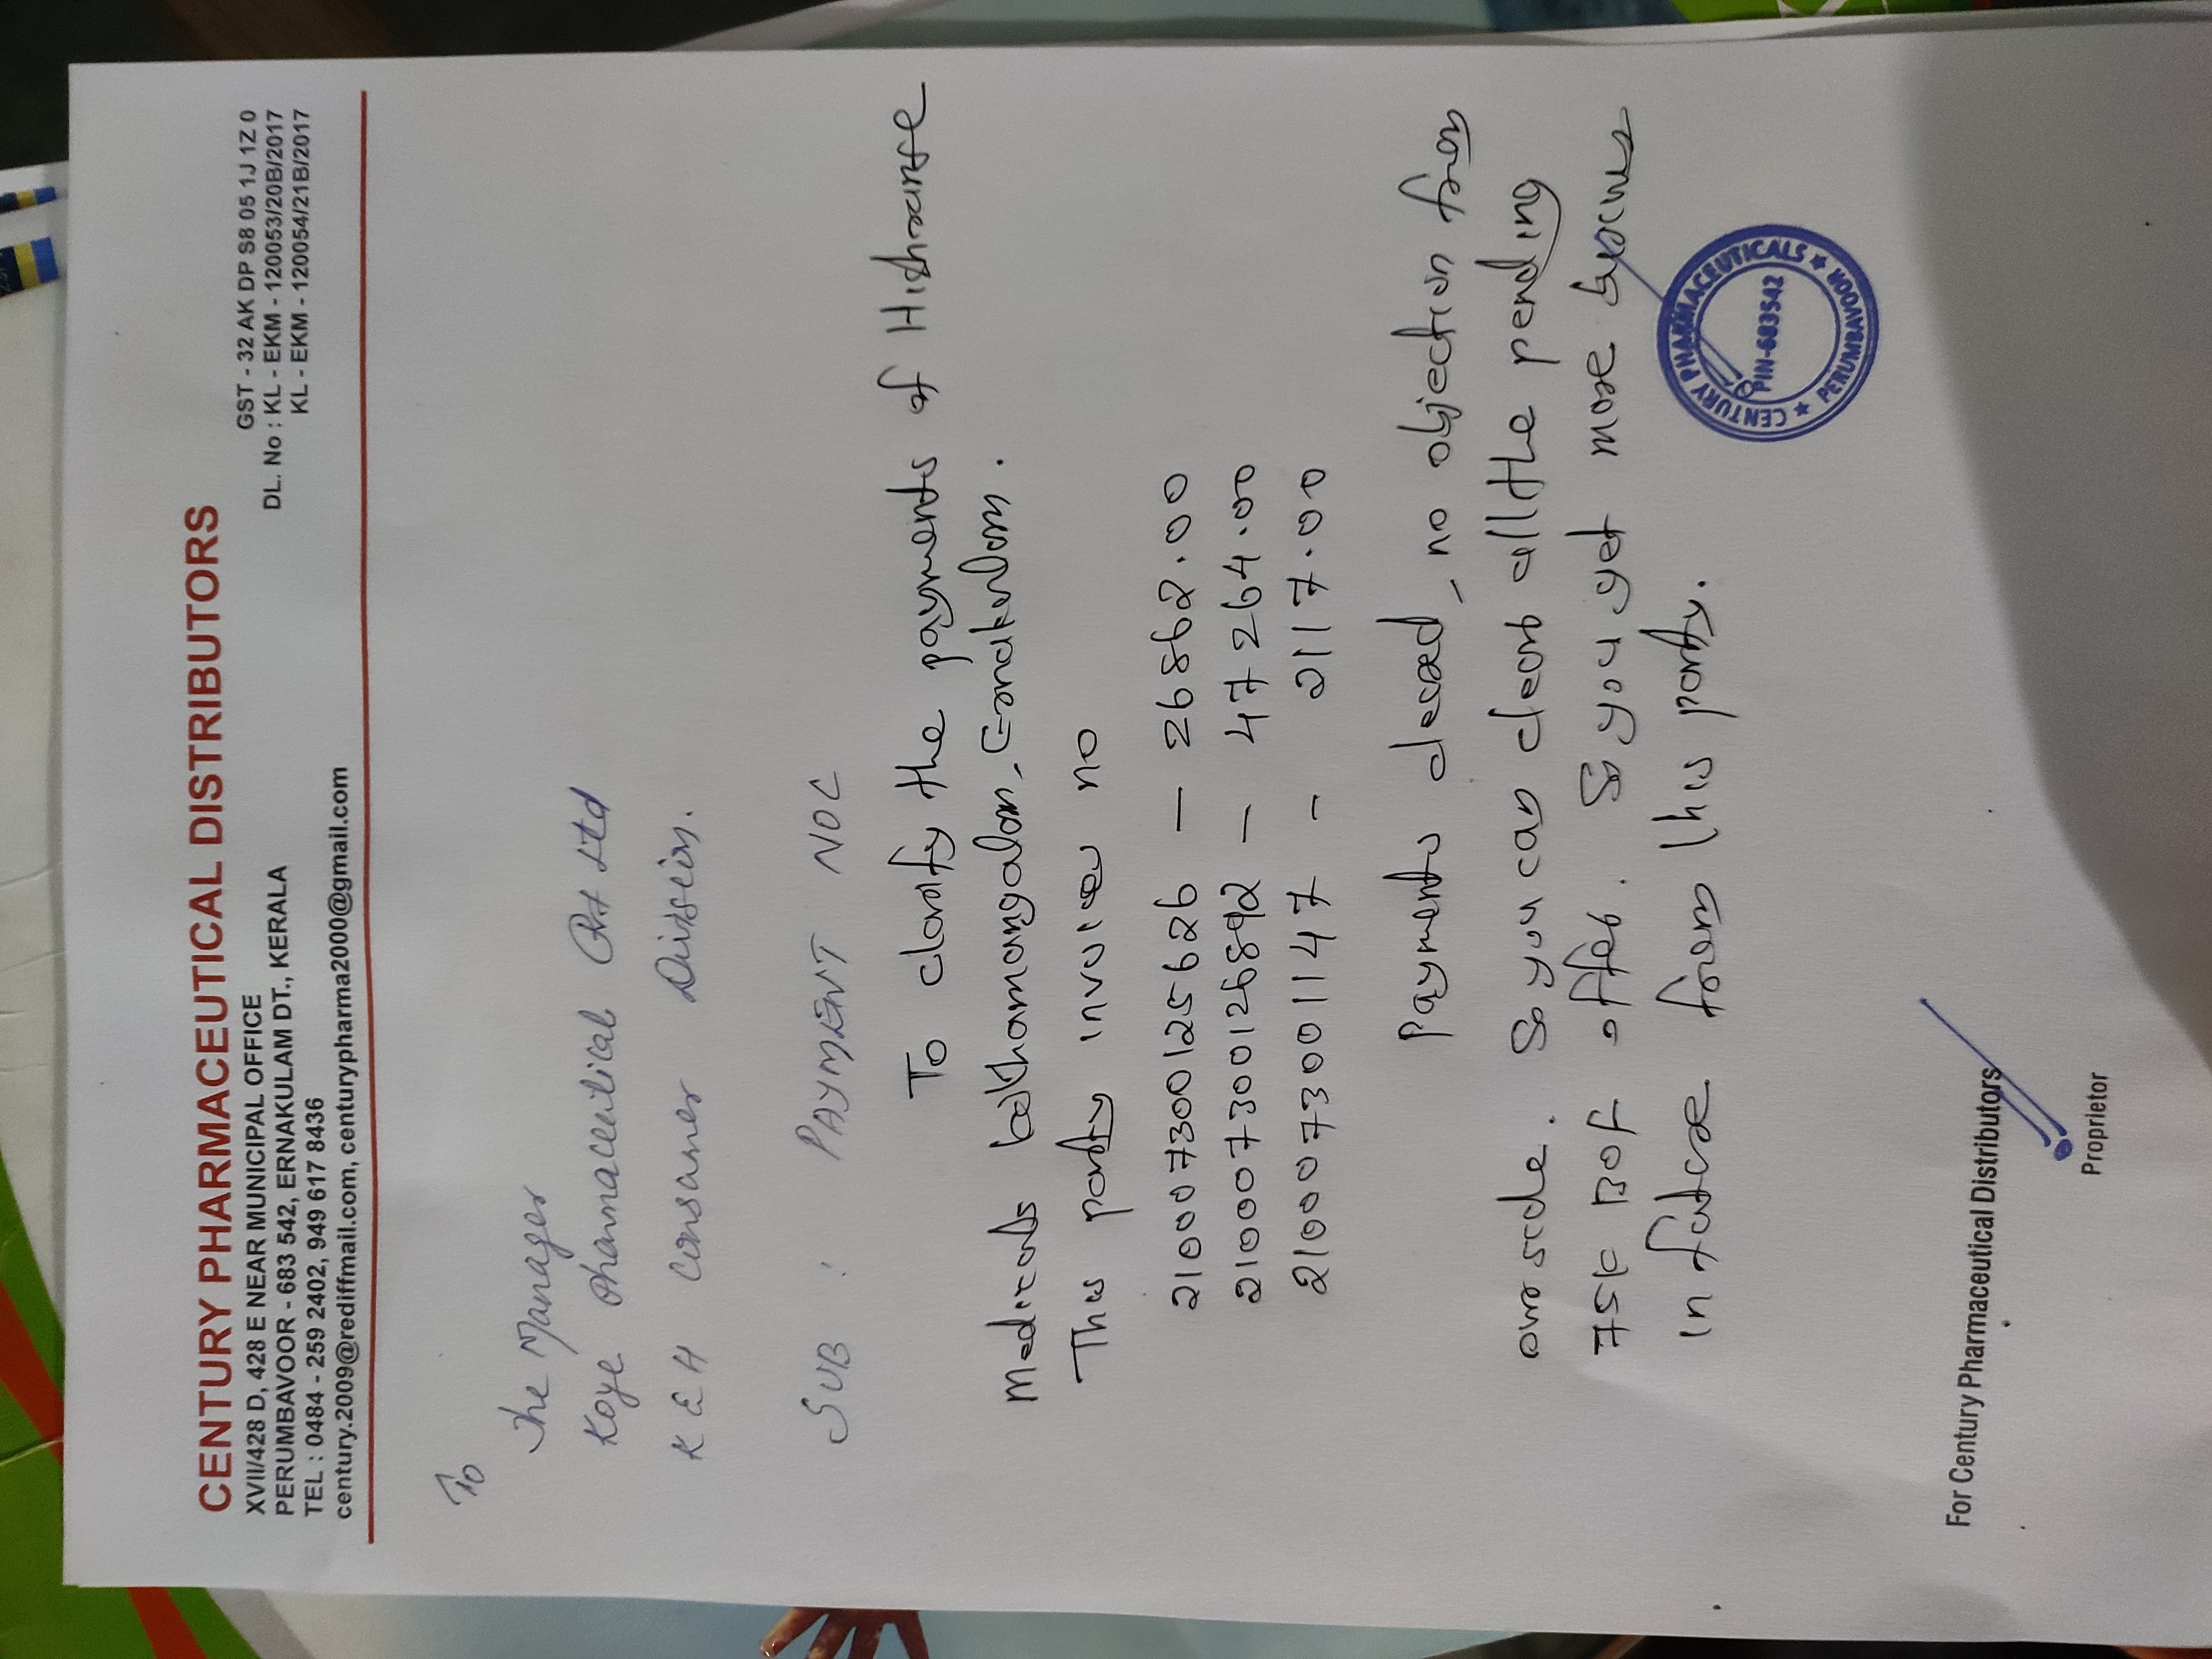 CENTURY PHARMACEUTICAL DISTRIBUTORS
XVII/428 D, 428 E NEAR MUNICIPAL OFFICE
PERUMBAVOOR - 683 542, ERNAKULAM DT., KERALA
TEL : 0484 - 259 2402, 949 617 8436
century.2009@rediffmail.com, centurypharma2000@gmail.com
GST - 32 AK DP S8 05 1J 1Z 0
DL. No : KL - EKM - 120053/20B/2017
KL - EKM - 120054/21B/2017
To
The Manager
Koye Pharmaceutical Pvt Ltd
K E H Consumer Division.
SUB : PAYMENT NOC
To clarify the payments of
Medicals Ernakulam.
This party invoice no
210007300125626 — 26862.00
210007300126892 — 47264.00
2100073001147 - 2117.00
Payments cleared, no objection from
our side. So you can clear all the pending
75K offer. So you get more
in future from this party.
CENTURY PHARMACEUTICALS ★ PERUMBAVOOR ★
PIN-683542
For Century Pharmaceutical Distributors
Proprietor